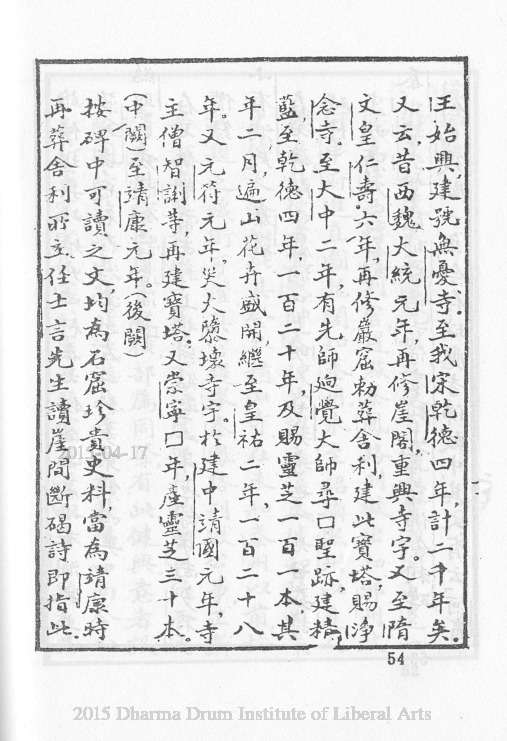 王始興建號無憂寺。至我宋乾德四年,計二千年矣。
又云昔西魏大統元年,再修崖閣,重興寺宇。又至隋
文皇仁壽六年,再修巖窟,勅葬舍利,建此寶塔,賜淨
念寺。至大中二年,有先師迥覺大師尋口聖跡,建精
藍,至乾德四年,一百二十年,及賜靈芝一百一本,其
年二月,遍山花卉盛開,繼至皇祐二年,一百二十八
年。又元符元年,災火隳壞寺宇。於建中靖國元年,寺
主僧智訓等,再建寶塔。又崇寧口年,產靈芝三十本。
(中闕)至靖康元年。(後闕)
按碑中可讀之文,均為石窟珍貴史料,當為靖康時
再葬舍利所立,任士言先生讀崖間斷碣詩,即指此。
54
2013-04-17
2015 Dharma Drum Institute of Liberal Arts